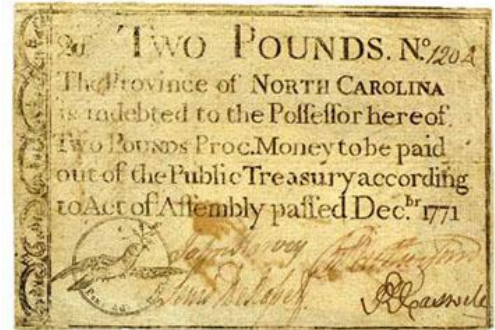 TWO POUNDS. No. 1202
The Province of NORTH CAROLINA
is indebted to the Poſſeſſor hereof
Two Pounds Proc. Money to be paid
out of the Public Treasury according
to Act of Aſſembly paſſed Dec.br 1771